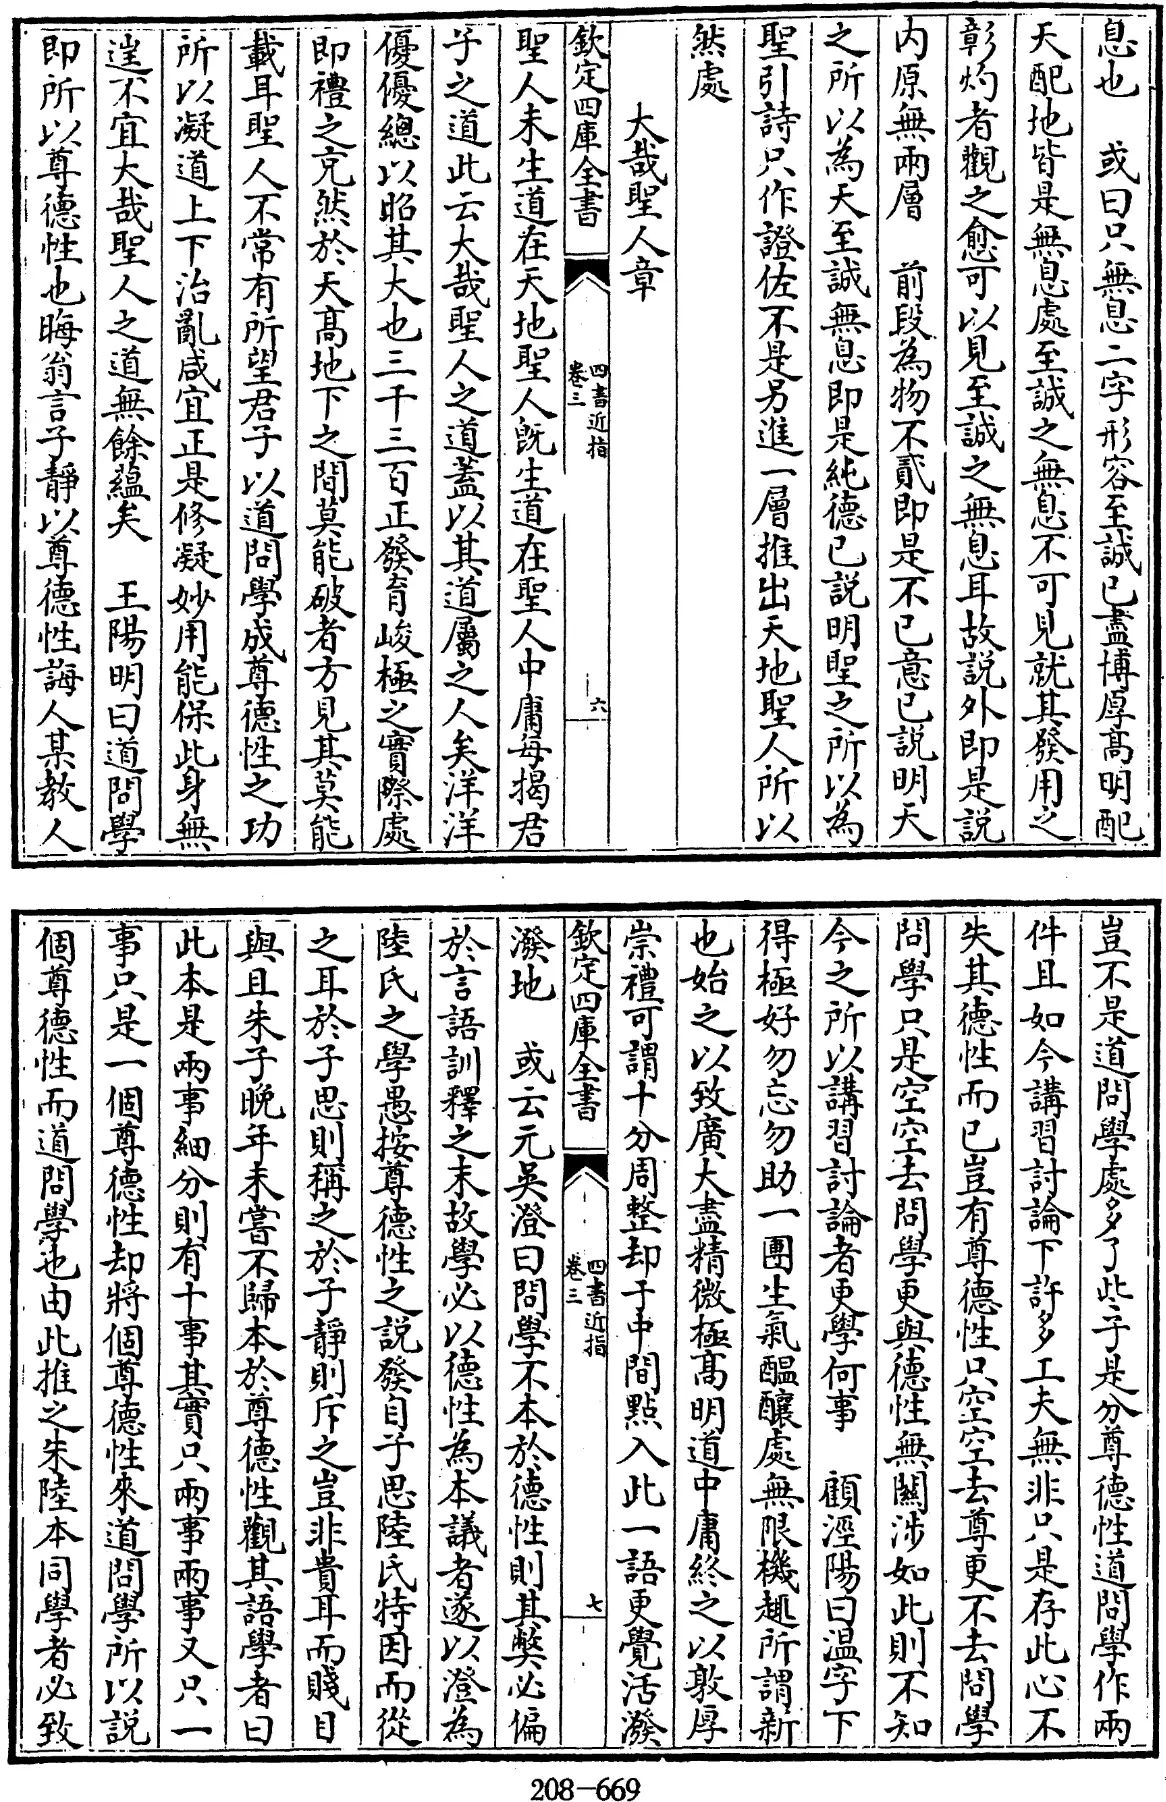 息也　或曰只無息二字形容至誠已盡博厚高明配
天配地皆是無息處至誠之無息不可見就其發用之
彰灼者觀之愈可以見至誠之無息耳故説外即是説
内原無兩層　前段為物不貳即是不已意已説明天
之所以為天至誠無息即是純德已説明聖之所以為
聖引詩只作證佐不是另進一層推出天地聖人所以
然處
大哉聖人章
欽定四庫全書
四書近指
卷三
六
聖人未生道在天地聖人既生道在聖人中庸每揭君
子之道此云大哉聖人之道蓋以其道屬之人矣洋洋
優優總以昭其大也三千三百正發育峻極之實際處
即禮之克然於天高地下之間莫能破者方見其莫能
載耳聖人不常有所望君子以道問學成尊德性之功
所以凝道上下治亂咸宜正是修凝妙用能保此身無
逹不宜大哉聖人之道無餘藴矣　王陽明曰道問學
即所以尊德性也晦翁言子靜以尊德性誨人某教人
豈不是道問學處多了些子是分尊德性道問學作兩
件且如今講習討論下許多工夫無非只是存此心不
失其德性而已豈有尊德性只空空去尊更不去問學
問學只是空空去問學更與德性無關涉如此則不知
今之所以講習討論者更學何事　顧涇陽曰温字下
得極好勿忘勿助一團生氣醖釀處無限機趣所謂新
也始之以致廣大盡精微極高明道中庸終之以敦厚
崇禮可謂十分周整却于中間點入此一語更覺活潑
欽定四庫全書
四書近指
卷三
七
潑地　或云元吳澄曰問學不本於德性則其獘必偏
於言語訓釋之末故學必以德性為本議者遂以澄為
陸氏之學愚按尊德性之説發自子思陸氏特因而從
之耳於子思則稱之於子靜則斥之豈非貴耳而賤目
與且朱子晚年未嘗不歸本於尊德性觀其語學者曰
此本是兩事細分則有十事其實只兩事兩事又只一
事只是一個尊德性却將個尊德性來道問學所以説
個尊德性而道問學也由此推之朱陸本同學者必致
208-669